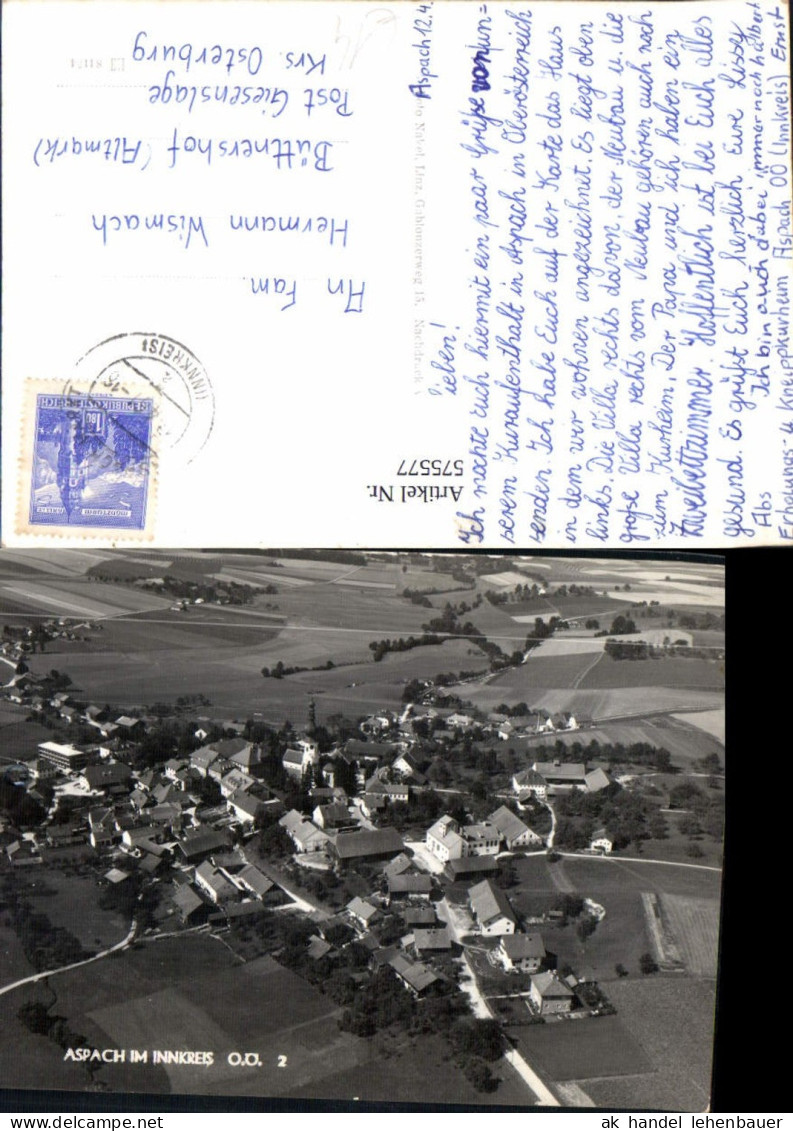 Aspach 12.4.
Ihr
lieben!
Ich möchte euch hiermit ein paar Grüße von un=
serem Kuraufenthalt in Aspach in Oberösterreich
senden. Ich habe Euch auf der Karte das Haus
in dem wir wohnen angezeichnet. Es liegt oben
links. Die Villa rechts davor, der Neubau u. die
große Villa rechts vom Neubau gehören auch noch
zum Kurheim. Der Papa und ich haben ein
Zweibettzimmer. Hoffentlich ist bei Euch alles
gesund. Es grüßt Euch herzlich Eure Lissy
Ich bin auch dabei immer noch halber Ernst
Abs
Erholungs- u Kneippkurheim Aspach OÖ (Innkreis)
An Fam.
Hermann Wismach
Büttnershof (Altmark)
Post Giesenslage
Krs. Osterburg
Nabel, Linz, Gablonzerweg 15. Nachdruck
REPUBLIK ÖSTERREICH
1.80
(INNKREIS)
Artikel Nr.
575577
ASPACH IM INNKREIS O.Ö. 2
ak handel lehenbauer